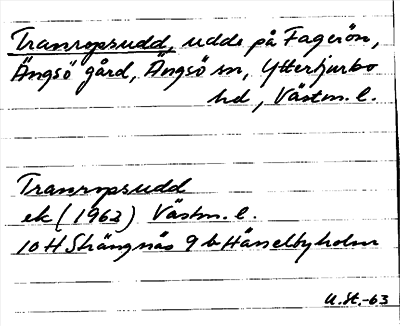 Tranropsudd, udde på Fagerön,
Ängsö gård, Ängsö sn, Ytterbjurbo
hd, Västm. l.
Tranropsudd
ek (1962) Västm. l.
10 H Strängnäs 9 b Hässelbyholm
U.St.-63